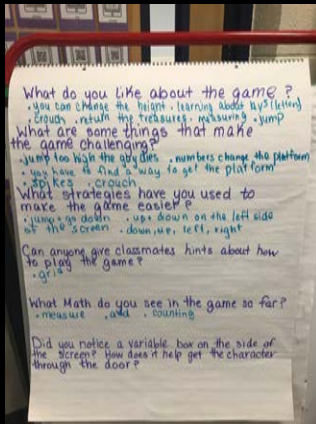 What do you like about the game?
• you can change the height • learning about keys (letters)
• crouch • return the treasures • measuring • jump
What are some things that make
the game challenging?
• jump too high the guy dies • numbers change the platform
• you have to find a way to get the platform
• spikes • crouch
What strategies have you used to
make the game easier?
• jump + go down • up + down on the left side
of the screen • down, up, left, right
Can anyone give classmates hints about how
to play the game?
• grid
What Math do you see in the game so far?
• measure • add • counting
Did you notice a variable box on the side of
the screen? How does it help get the character
through the door?